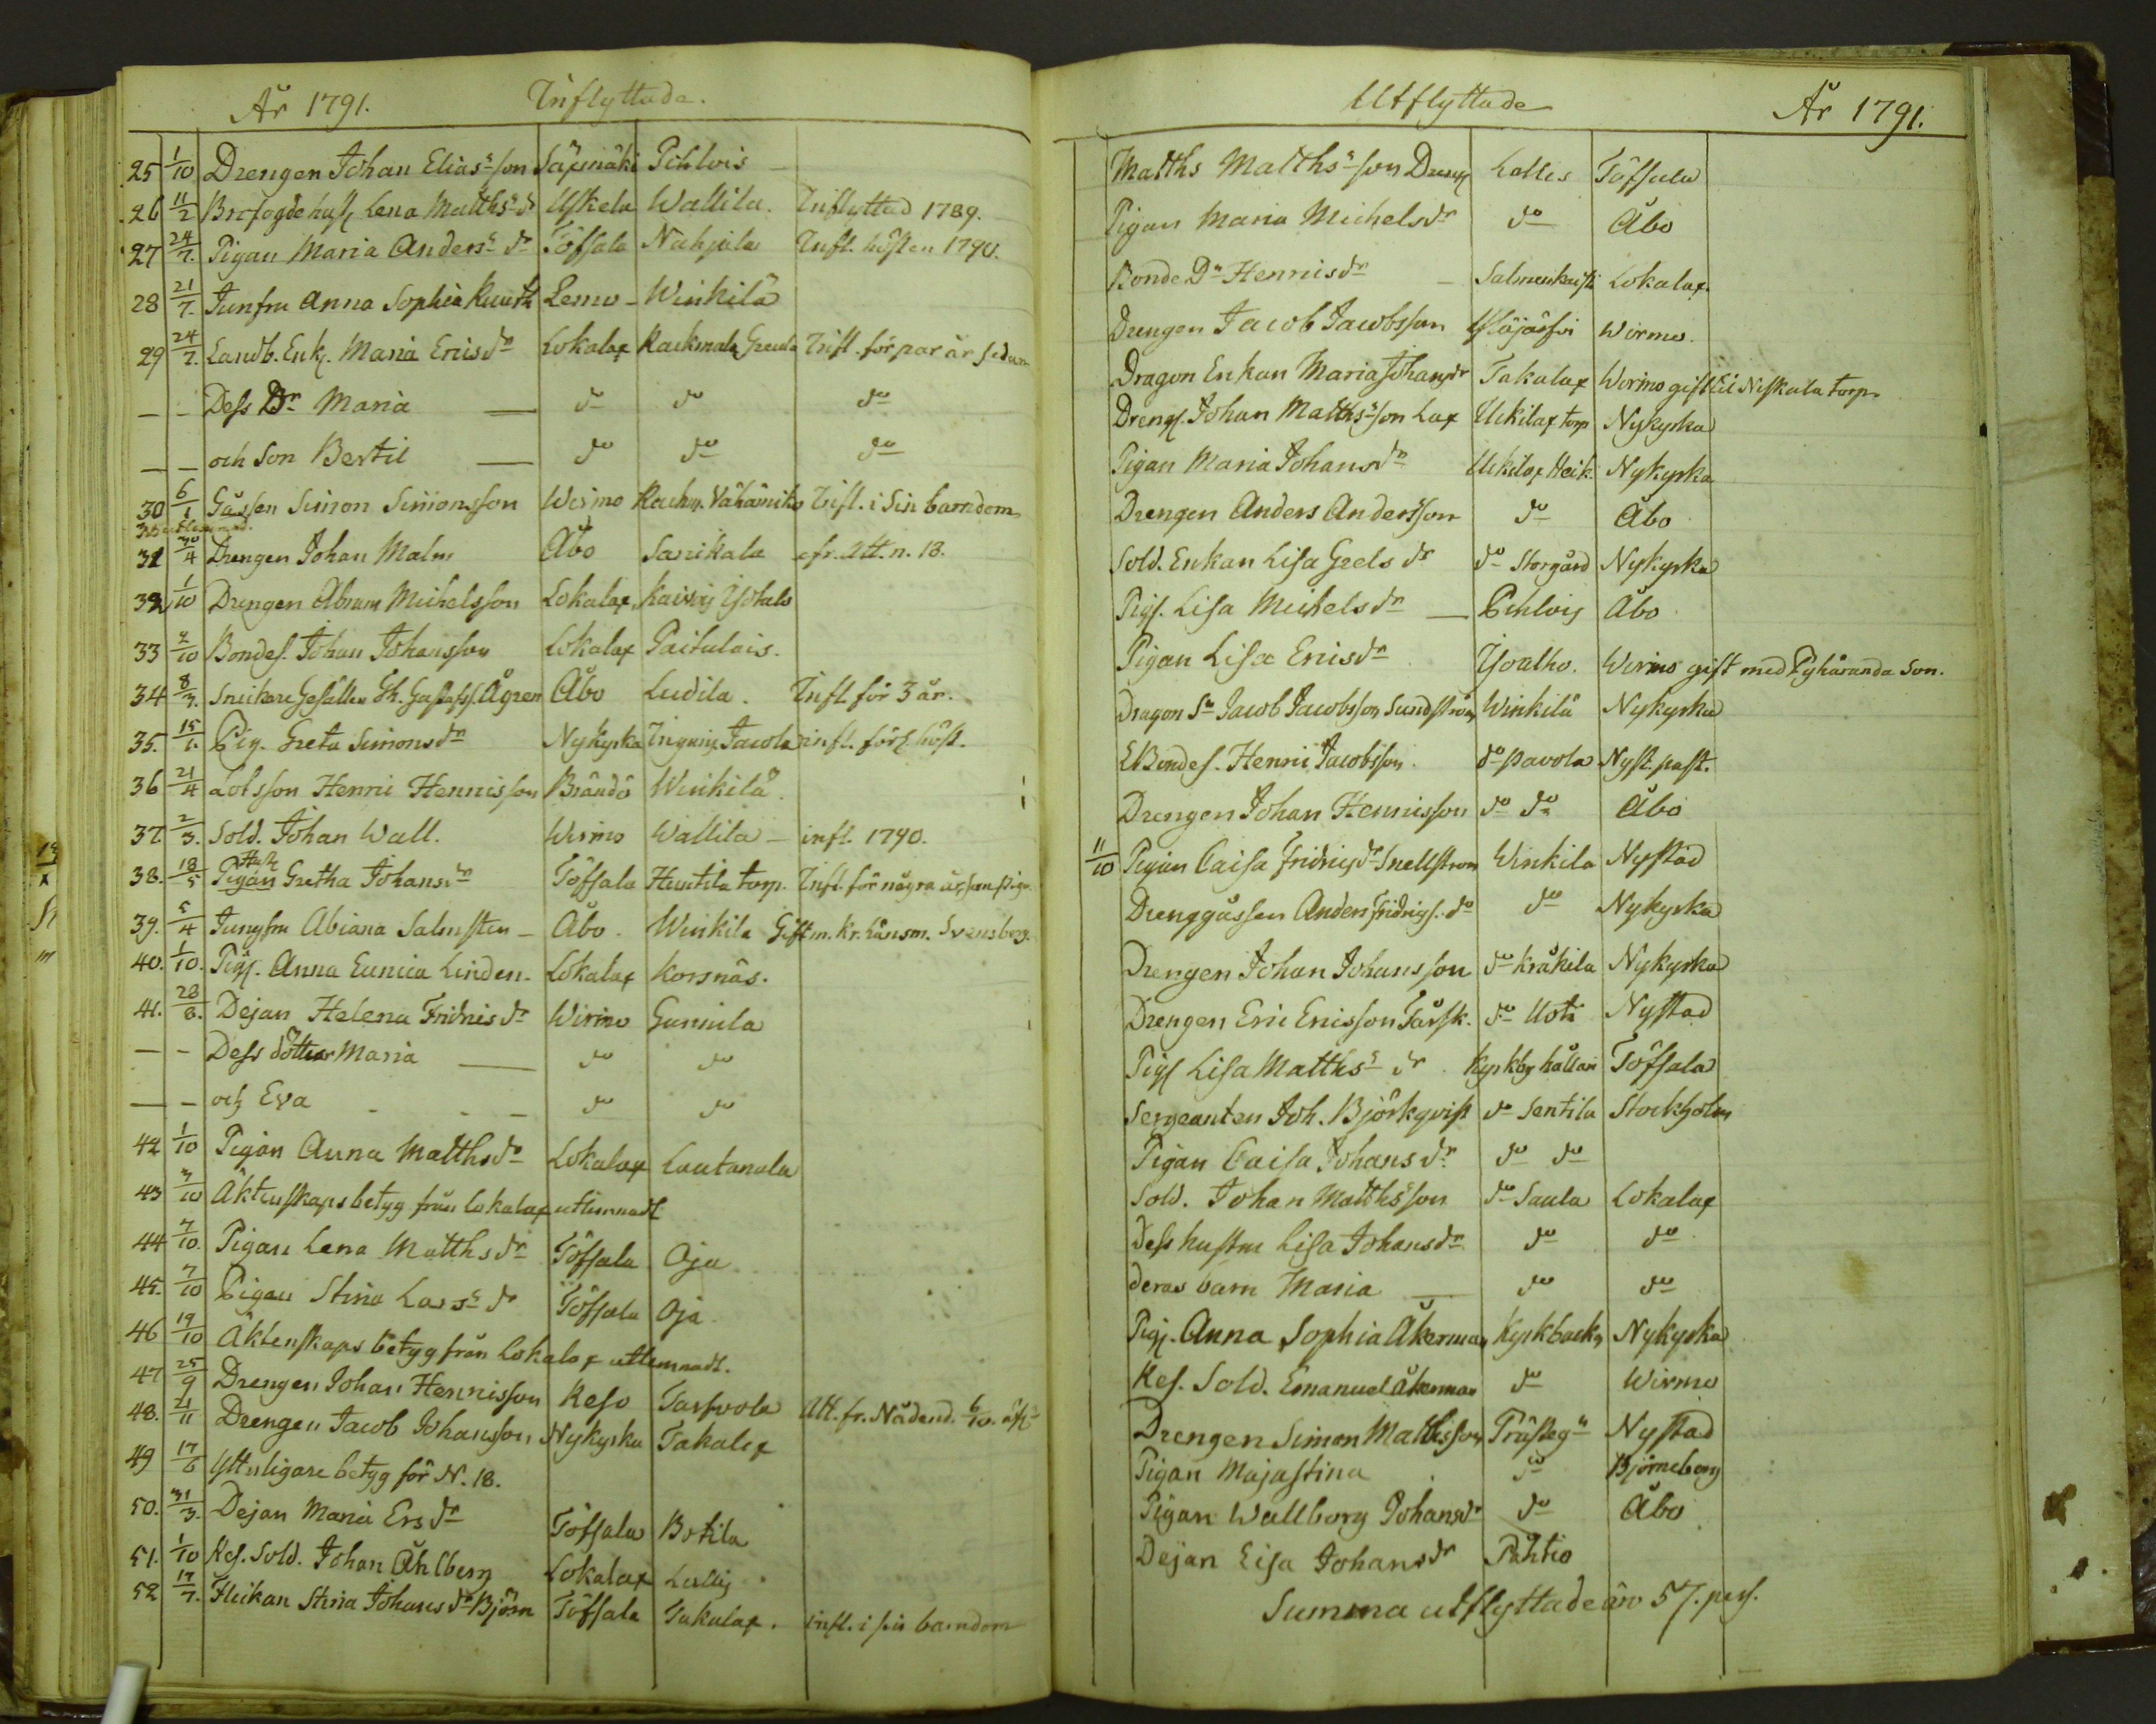 År 1791. Inflyttade.
25 1/10 Drengen Johan Elias son Säymäki Pehlvis
26 11/2 Brofogde hust. Lena Matths dr Uskela Wallila. Inflyttad 1789.
27 24/7. Pigan Maria Anders dr Töfsala Nahjala Infl. hösten 1790.
28 21/7. Junfru Anna Sophia Lemo - Winkilä
29 24/7. Landb. Enk. Maria Ericsdr Lokalax Infl. för par år sedan
_ - Dess Dr Maria do do do
_ _ och Son Bertil do do do
30 6/1 Gåssen Simon Simonsson Wirmo Vähämiko Infl. i Sin barndom
31 30/4 Drengen Johan Malm Åbo Sarikala cfr. Att. n. 18.
32 1/10 Drengen Abram Michelsson Lokalax
33 2/10 Bondes. Johan Johansson Lokalax Paitulais.
34 8/3. Snickare Gesällen Åbo Ludila. Infl. för 3 år.
35. 15/1. Pig. Greta Simonsdr Nykyrka infl. förl. höst.
36 21/4 Lotsson Henric Henricsson Brändö Winkilä
37. 2/3. Sold. Johan Wall. Wirmo Wallila - infl. 1790.
Hust.
38. 18/5 Pigan Gretha Johansdr Töfsala Huntila torp. Infl. för några år som piga
39. 5/4 Jungfru Abiana Salmsten - Åbo. Winkila Gift m. Kr. länsm. Svensberg.
40. 1/10. Pig. Anna Eunica Linden. Lokalax Korsnäs.
41. 28/8. Dejan Helena Fridricsdr Wirmo Gunnila
- - Dess dotter Maria do do
- - och Eva - - - do do
42 1/10 Pigan Anna Matthsdr Lokalax Lautanala
43 3/10 Äktenskapsbetyg från Lokalax utlemnadt
44 7/10. Pigan Lena Matthsdr Töfsala Oja
45. 7/10 Pigan Stina Lars dr Töfsala Oja
46 19/10 Äktenskaps betyg från Lokalax utlemnadt.
47 25/9 Drengen Johan Henricsson Reso Tarfvola Att. fr. Nådend. 6/10.
48. 21/11 Drengen Jacob Johansson Nykyrka Takalax
49 17/6 Ytterligare betyg för N. 18.
50. 31/3. Dejan Maria Ersdr Töfsala Botila
51. 1/10 Ref. Sold. Johan Åhlberg Lokalax Lallis
52 17/7. Flickan Stina Johans dr Björn Töfsala Takalax. infl. i sin barndom
Utflyttade År 1791.
Matths Matths son Dreng Lallis Töfsala
Pigan Maria Michelsdr do Åbo
Bonde Dr Henricsdr - Lokalax.
Drengen Jacob Jacobsson Yläjärfvi Wirmo.
Dragon Enkan Maria Johansdr Takalax Wirmo gift til Niskala torp.
Dreng. Johan Matthsson Lax Uckilax torp Nykyrka
Pigan Maria Johansdr Uckilax Heik. Nykyrka
Drengen Anders Andersson do Åbo
Sold. Enkan Lisa Grels dr do Storgård Nykyrka
Pig. Lisa Michelsdr Pehlvis Åbo
Pigan Lisa Ericsdr Isoalho. Wirmo gift med Pyhäranda Son.
Dragon Sn Jacob Jacobsson Sundström Winkilä Nykyrka
Bondes. Henric Jacobsson. do Pavola Nyst. past.
Drengen Johan Henricsson do do Åbo
11/10 Pigan Caisa Fridricsdr Snellström Winkila Nystad
Drenggåssen Anders Fridrics. do do Nykyrka
Drengen Johan Johansson do Kråkila Nykyrka
Drengen Eric Ericsson Tårsk. do Uoti Nystad
Pig Lisa Matths dr Kyrkby hållari Töfsala
Sergeanten Joh. Björkqvist do Sentila Stockholm
Pigan Caisa Johansdr do do
Sold. Johan Matthsson do Saula Lokalax
Dess hustru Lisa Johansdr do do
deras barn Maria do do
Pig. Anna Sophia Åkerman Kyrkback Nykyrka
Ref. Sold. Emanuel Åkerman do Wirmo
Drengen Simon Matthsson Prästegn Nystad
Pigan Majastina do Björneborg
Pigan Wallborg Johansdr do Åbo
Dejan Lisa Johansdr Pahtio
Summa utflyttade äro 57. pers.